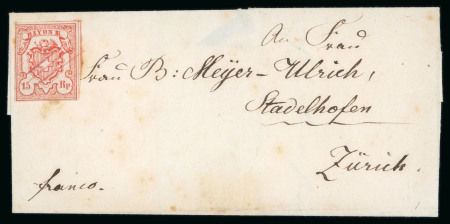 RAYON III
15 Rp
An Frau
Frau B: Meÿer-Ulrich,
Stadelhofen
Zürich.
franco.